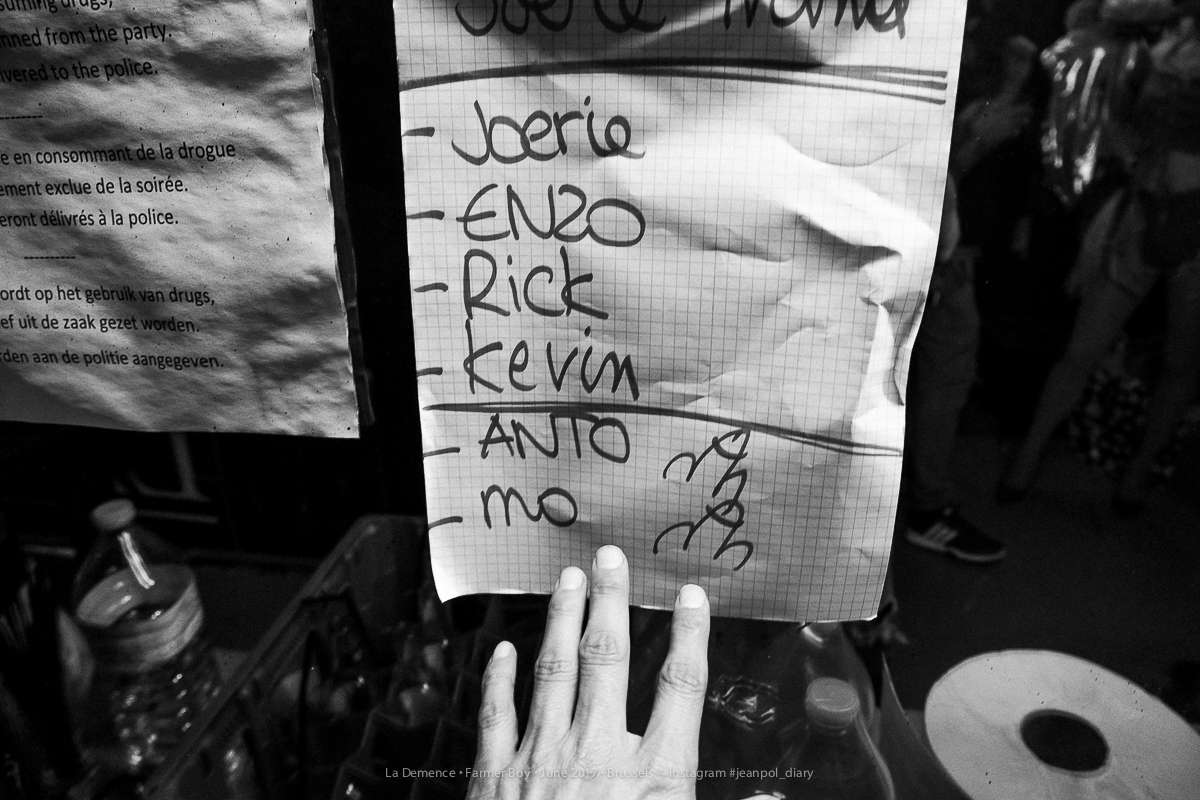 suming drugs,
nned from the party.
vered to the police.
----------
e en consommant de la drogue
ement exclue de la soirée.
eront délivrés à la police.
----------
ordt op het gebruik van drugs,
ef uit de zaak gezet worden.
rden aan de politie aangegeven.
Joerie
- Joerie
- ENZO
- Rick
- Kevin
- ANTO
- mo
La Demence • Farmer Boy • June 2017 • Brussels • Instagram #jeanpol_diary